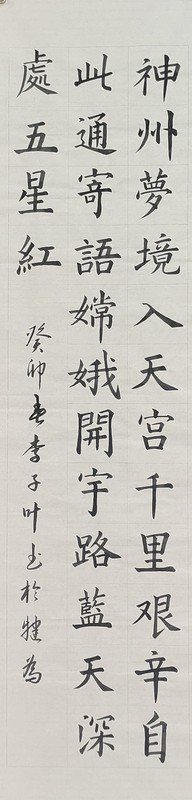 神州夢境入天宫千里艰辛自
此通寄語嫦娥開宇路藍天深
處五星紅
癸卯春李子叶书於犍為